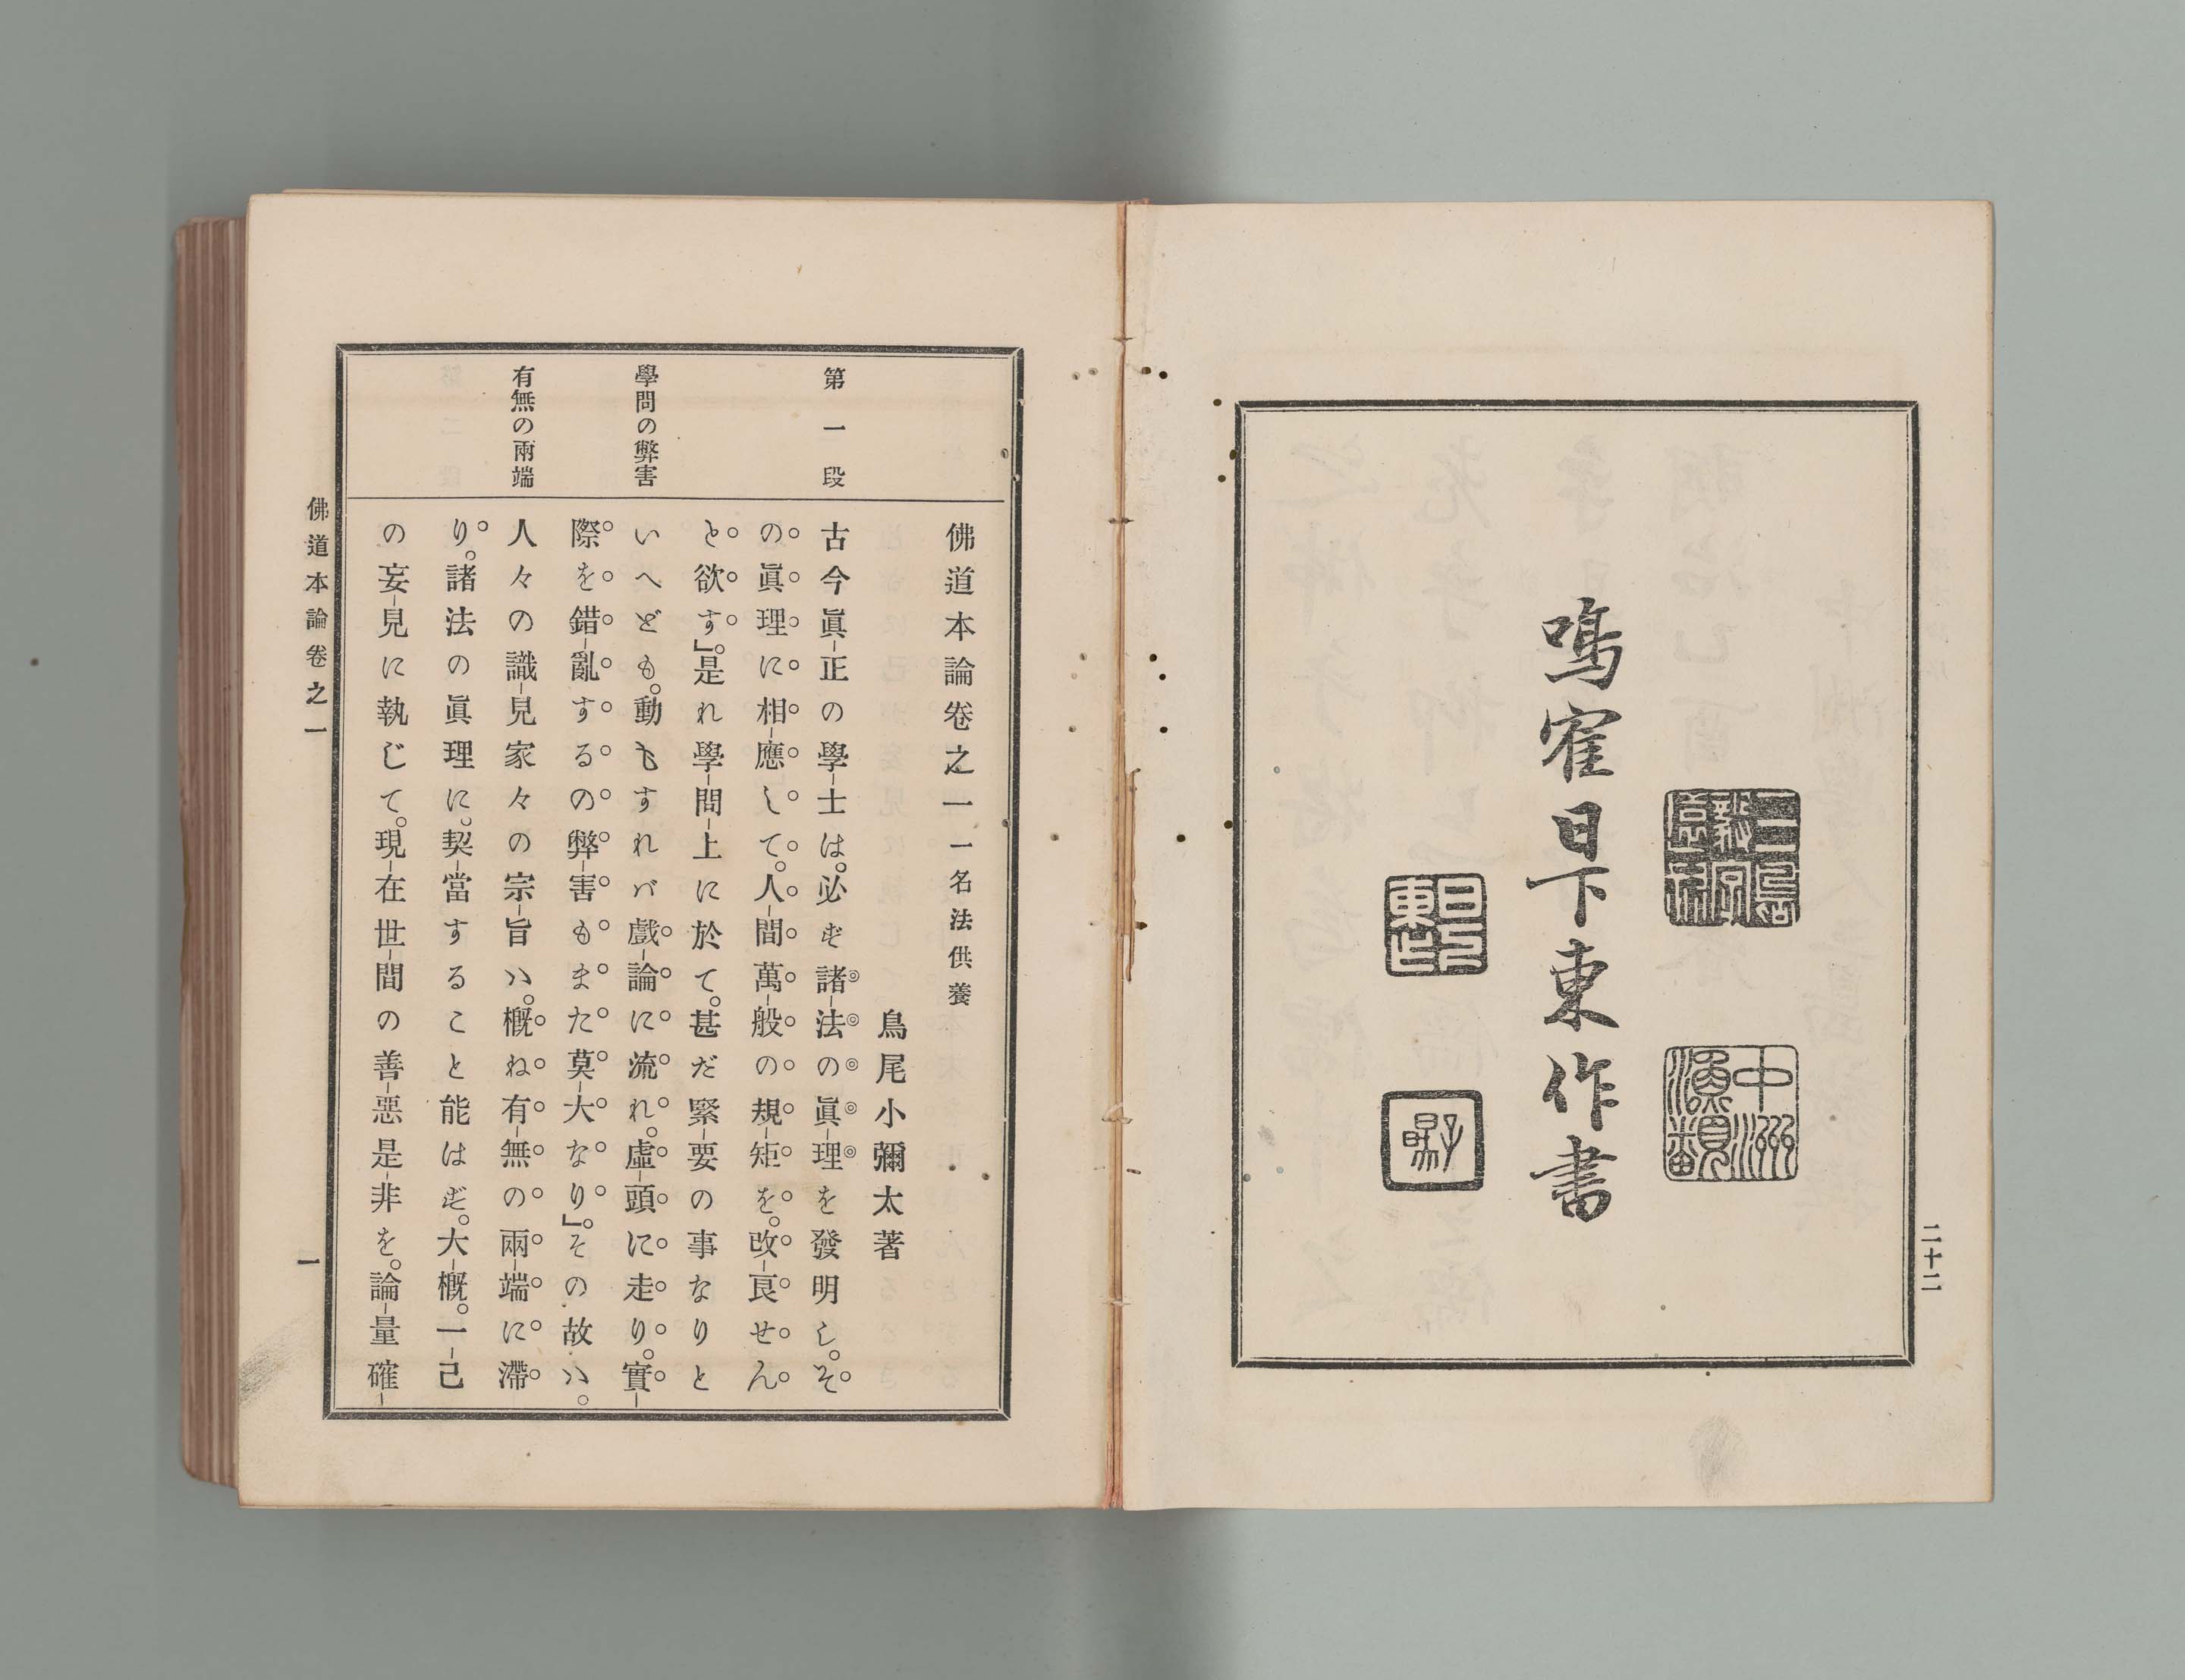 鳴隺日下東作書
二十二
佛道本論卷之一 一名法供養
鳥尾小彌太著
第一段
古今眞正の學士は。必ず諸法の眞理を發明し。そ
の眞理に相應して。人間萬般の規矩を。改良せん
と欲す」。是れ學問上に於て。甚だ緊要の事なりと
學問の弊害
いへども。動もすれバ戲論に流れ。虛頭に走り。實
際を錯亂するの弊害もまた莫大なり」。その故ハ。
有無の兩端
人々の識見家々の宗旨ハ。概ね有無の兩端に滯
り。諸法の眞理に。契當すること能はず。大概。一己
の妄見に執じて。現在世間の善惡是非を。論量確
佛道本論卷之一
一